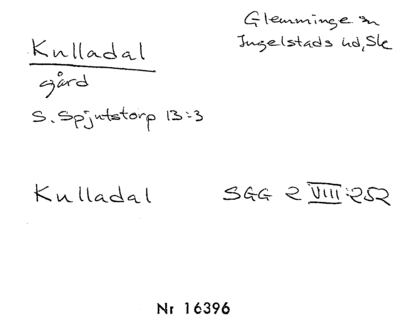 Kulladal
gård
S. Spjutstorp 13:3
Glemminge sn
Ingelstads hd, Sk
Kulladal
SGG 2 VIII:252
Nr 16396